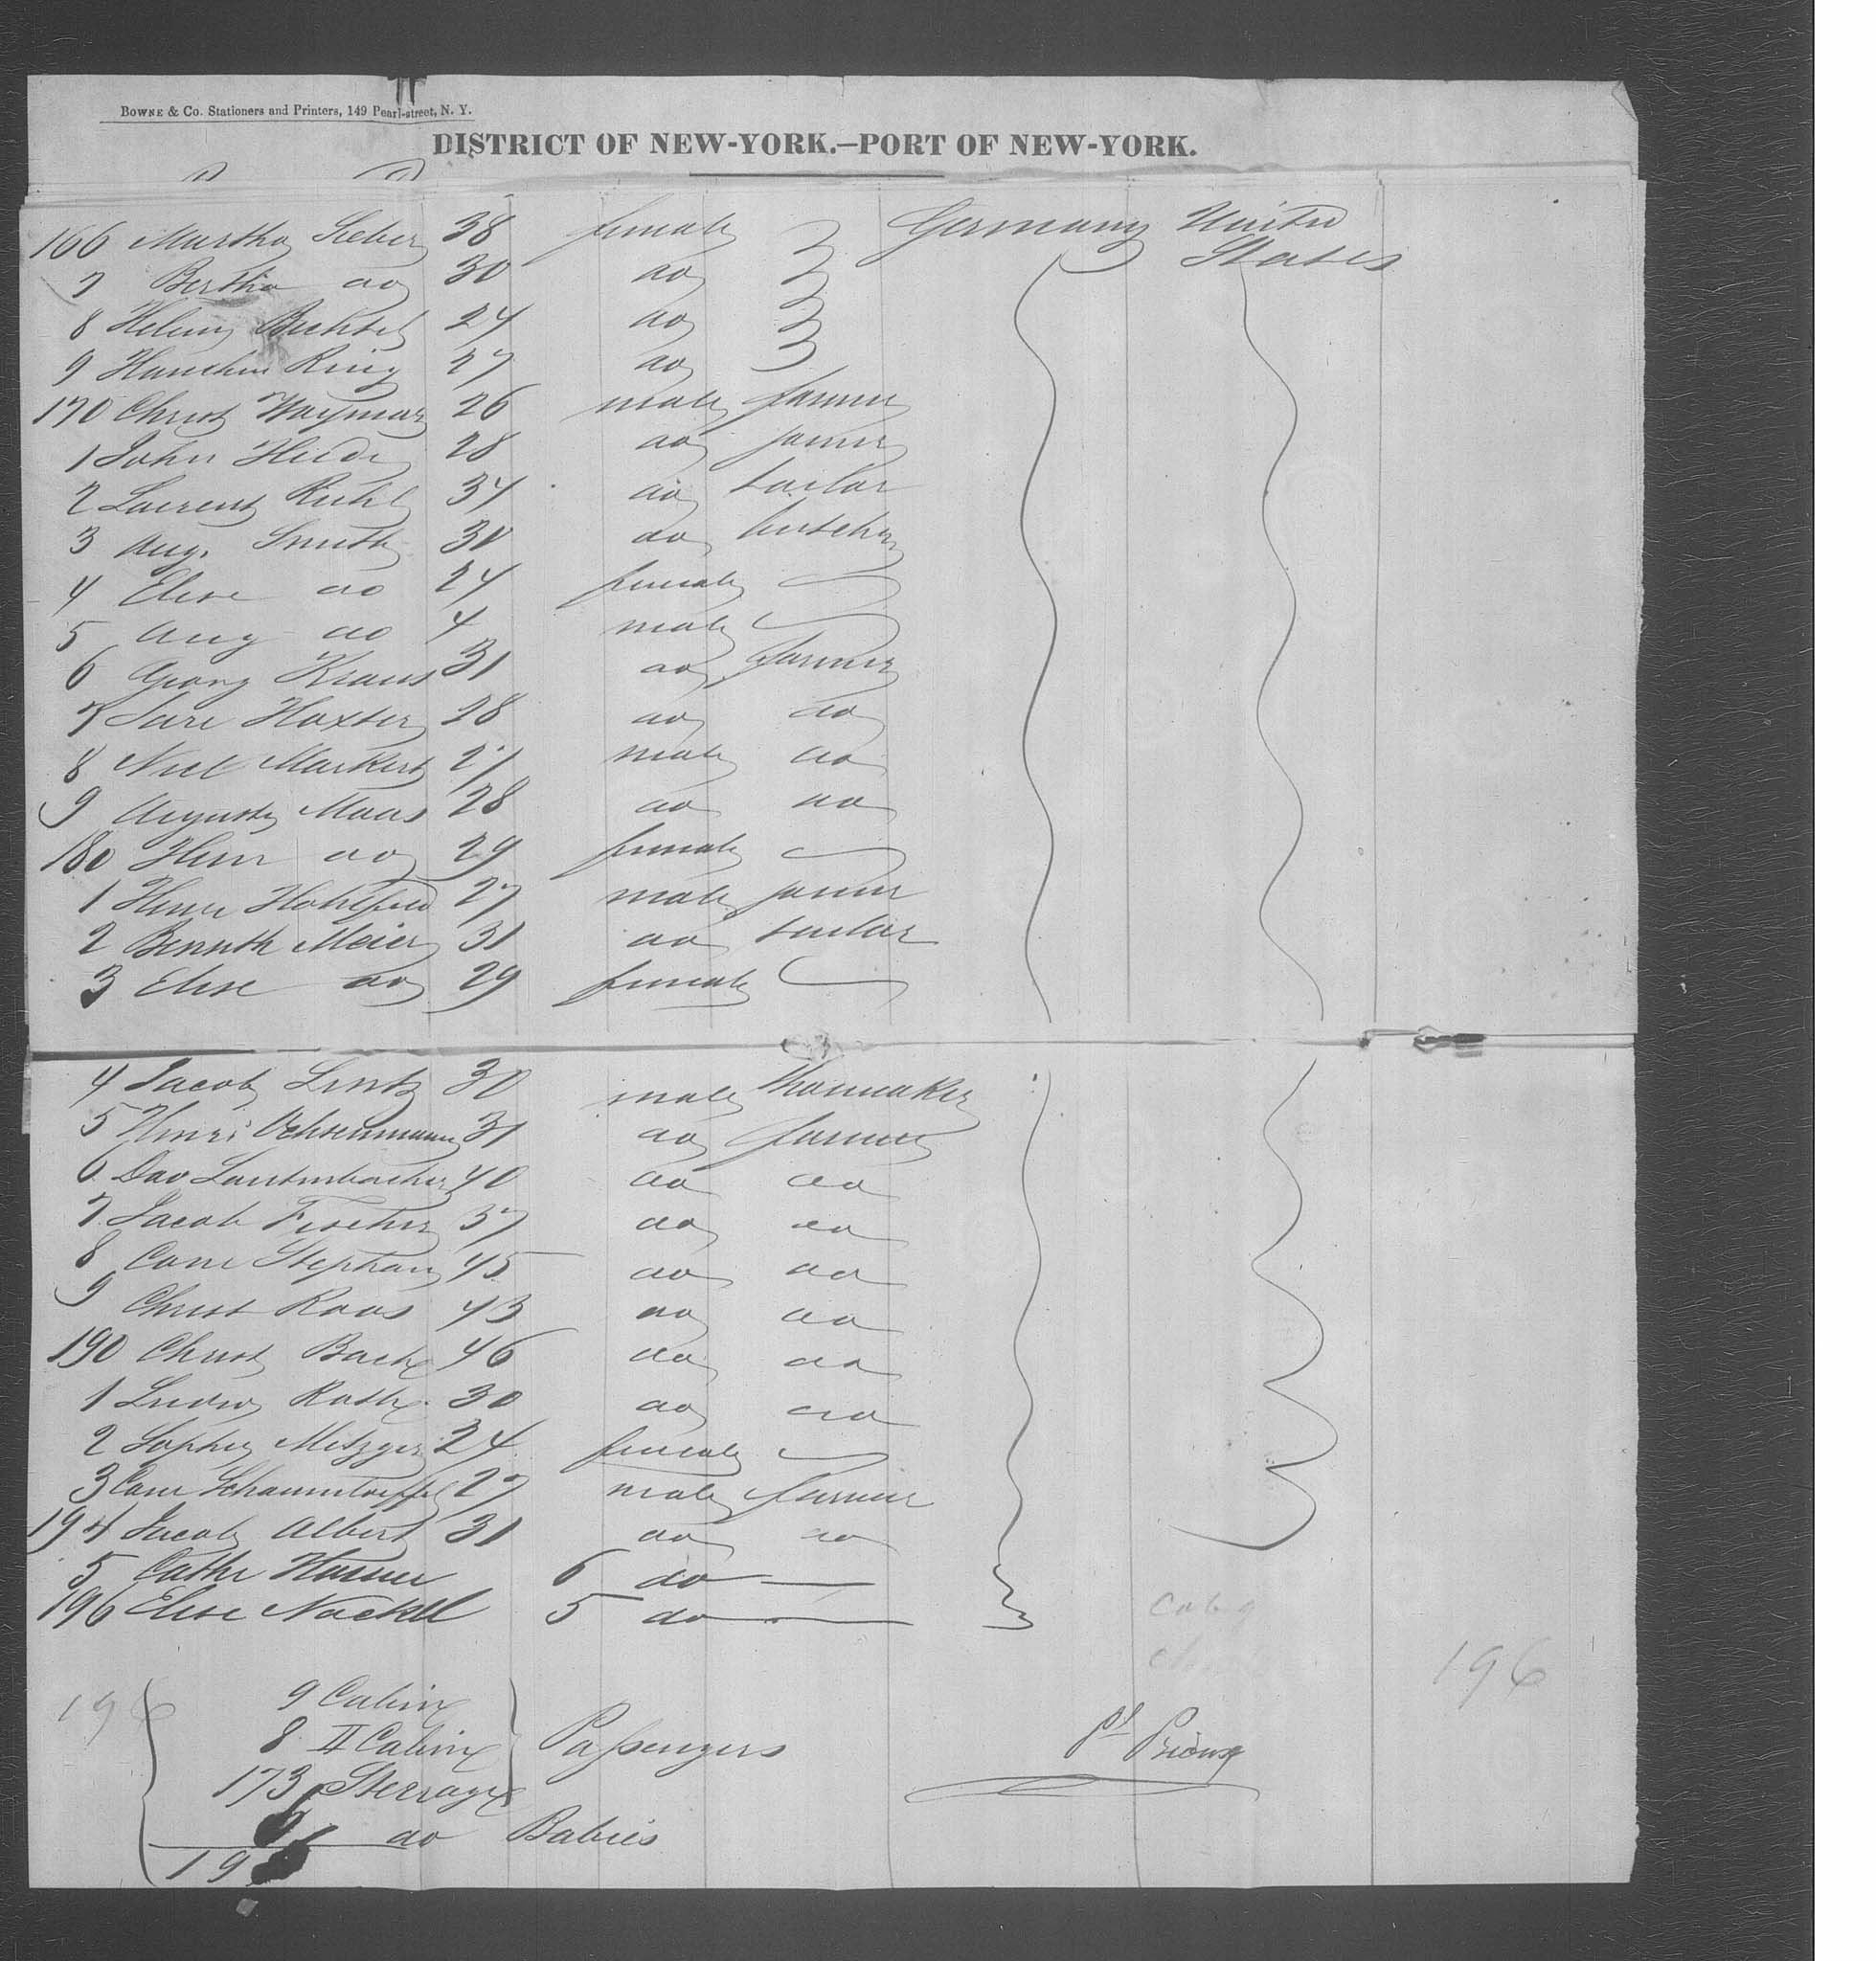 BOWNE & Co. Stationers and Printers, 149 Pearl-street, N. Y.
DISTRICT OF NEW-YORK.—PORT OF NEW-YORK.
166 Martha Sieber 38 female Germany United States
7 Bertha do 30 do
8 Helene Bechtel 24 do
9 Hanchen Ring 27 do
170 Christ Waymar 26 male farmer
1 John Heide 28 do
2 Laurent Riehl 34 do tailor
3 Aug. Smith 30 do butcher
4 Elise do 24 female
5 Aug do 4 male
6 Georg Kraus 31 do farmer
7 Hoxter 28 do do
8 Markert 27 male do
9 Auguste Maas 28 do do
180 do 29 female
1 27 male
2 Meier 31 do tailor
3 Elise do 29 female
4 Jacob Lintz 30 male
5 Henri Ochsenmann 31 do farmer
6 Dav Lautenbacher 40 do do
7 Jacob Fischer 37 do do
8 Stephan 45 do do
9 Christ Roos 43 do do
190 Christ Bach 46 do do
1 Ludwig Roth 30 do do
2 Sophie Metzger 24 female
3 27 male farmer
194 Jacob Albert 31 do do
5 Cathe 6 do —
196 Elise Nackel 5 do —
196
9 Cabin
8 II Cabin Passengers
173 Sterrage
do Babies
19
196